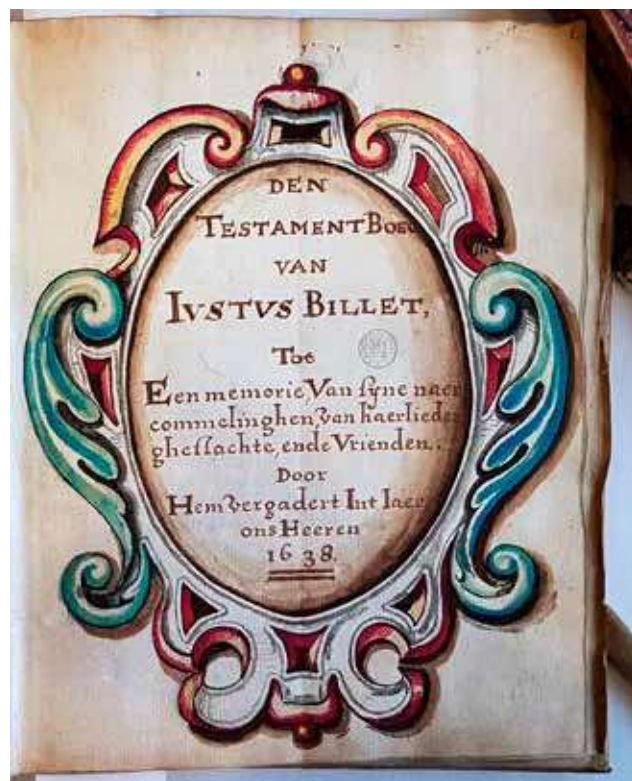 DEN
TESTAMENTBOEC
VAN
IVSTVS BILLET,
Tot
Een memorie Van syne naer
commelinghen, van haerlieder
gheslachte, ende Vrienden.
Door
Hem vergadert Int Iaer
ons Heeren
1638.